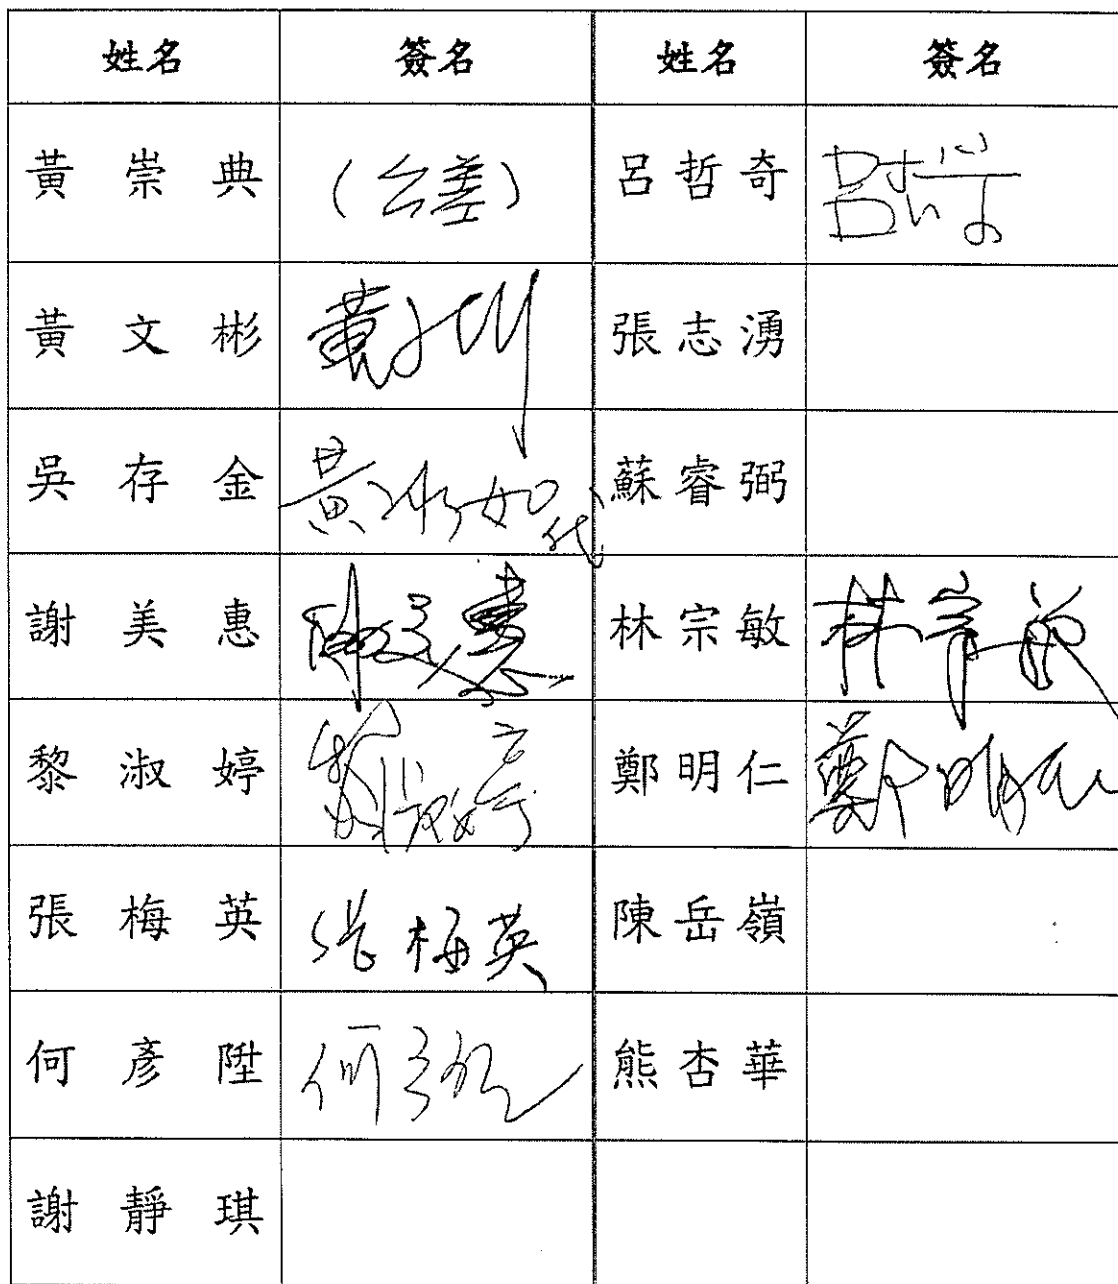 姓名 簽名 姓名 簽名
黃崇典 (公差) 呂哲奇 呂哲奇
黃文彬 黃文彬 張志湧
吳存金 黃冰如代 蘇睿弼
謝美惠 謝美惠 林宗敏 林宗敏
黎淑婷 黎淑婷 鄭明仁 鄭明仁
張梅英 張梅英 陳岳嶺
何彥陞 何彥陞 熊杏華
謝靜琪